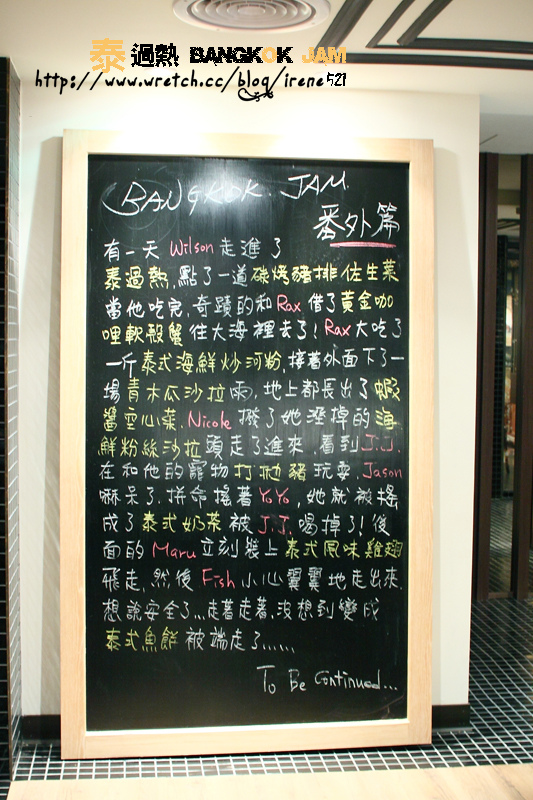 泰過熱 BANGKOK JAM
http://www.wretch.cc/blog/irene521
BANGKOK JAM
番外篇
有一天 Wilson 走進了
泰過熱，點了一道碳烤豬排佐生菜
當他吃完，奇蹟的和 Rax 借了黃金咖
哩軟殼蟹往大海裡去了！Rax 大吃了
一斤泰式海鮮炒河粉，接著外面下了一
場青木瓜沙拉雨，地上都長出了蝦
醬空心菜，Nicole 撥了她溼掉的海
鮮粉絲沙拉頭走了進來，看到 J.J.
在和他的寵物打拋豬玩耍，Jason
嚇呆了，拼命搖著 YoYo，她就被搖
成了泰式奶茶被 J.J. 喝掉了！後
面的 Maru 立刻裝上泰式風味雞翅
飛走，然後 Fish 小心翼翼地走出來
想說安全了...走著走著，沒想到變成
泰式魚餅被端走了......
To Be Continued...